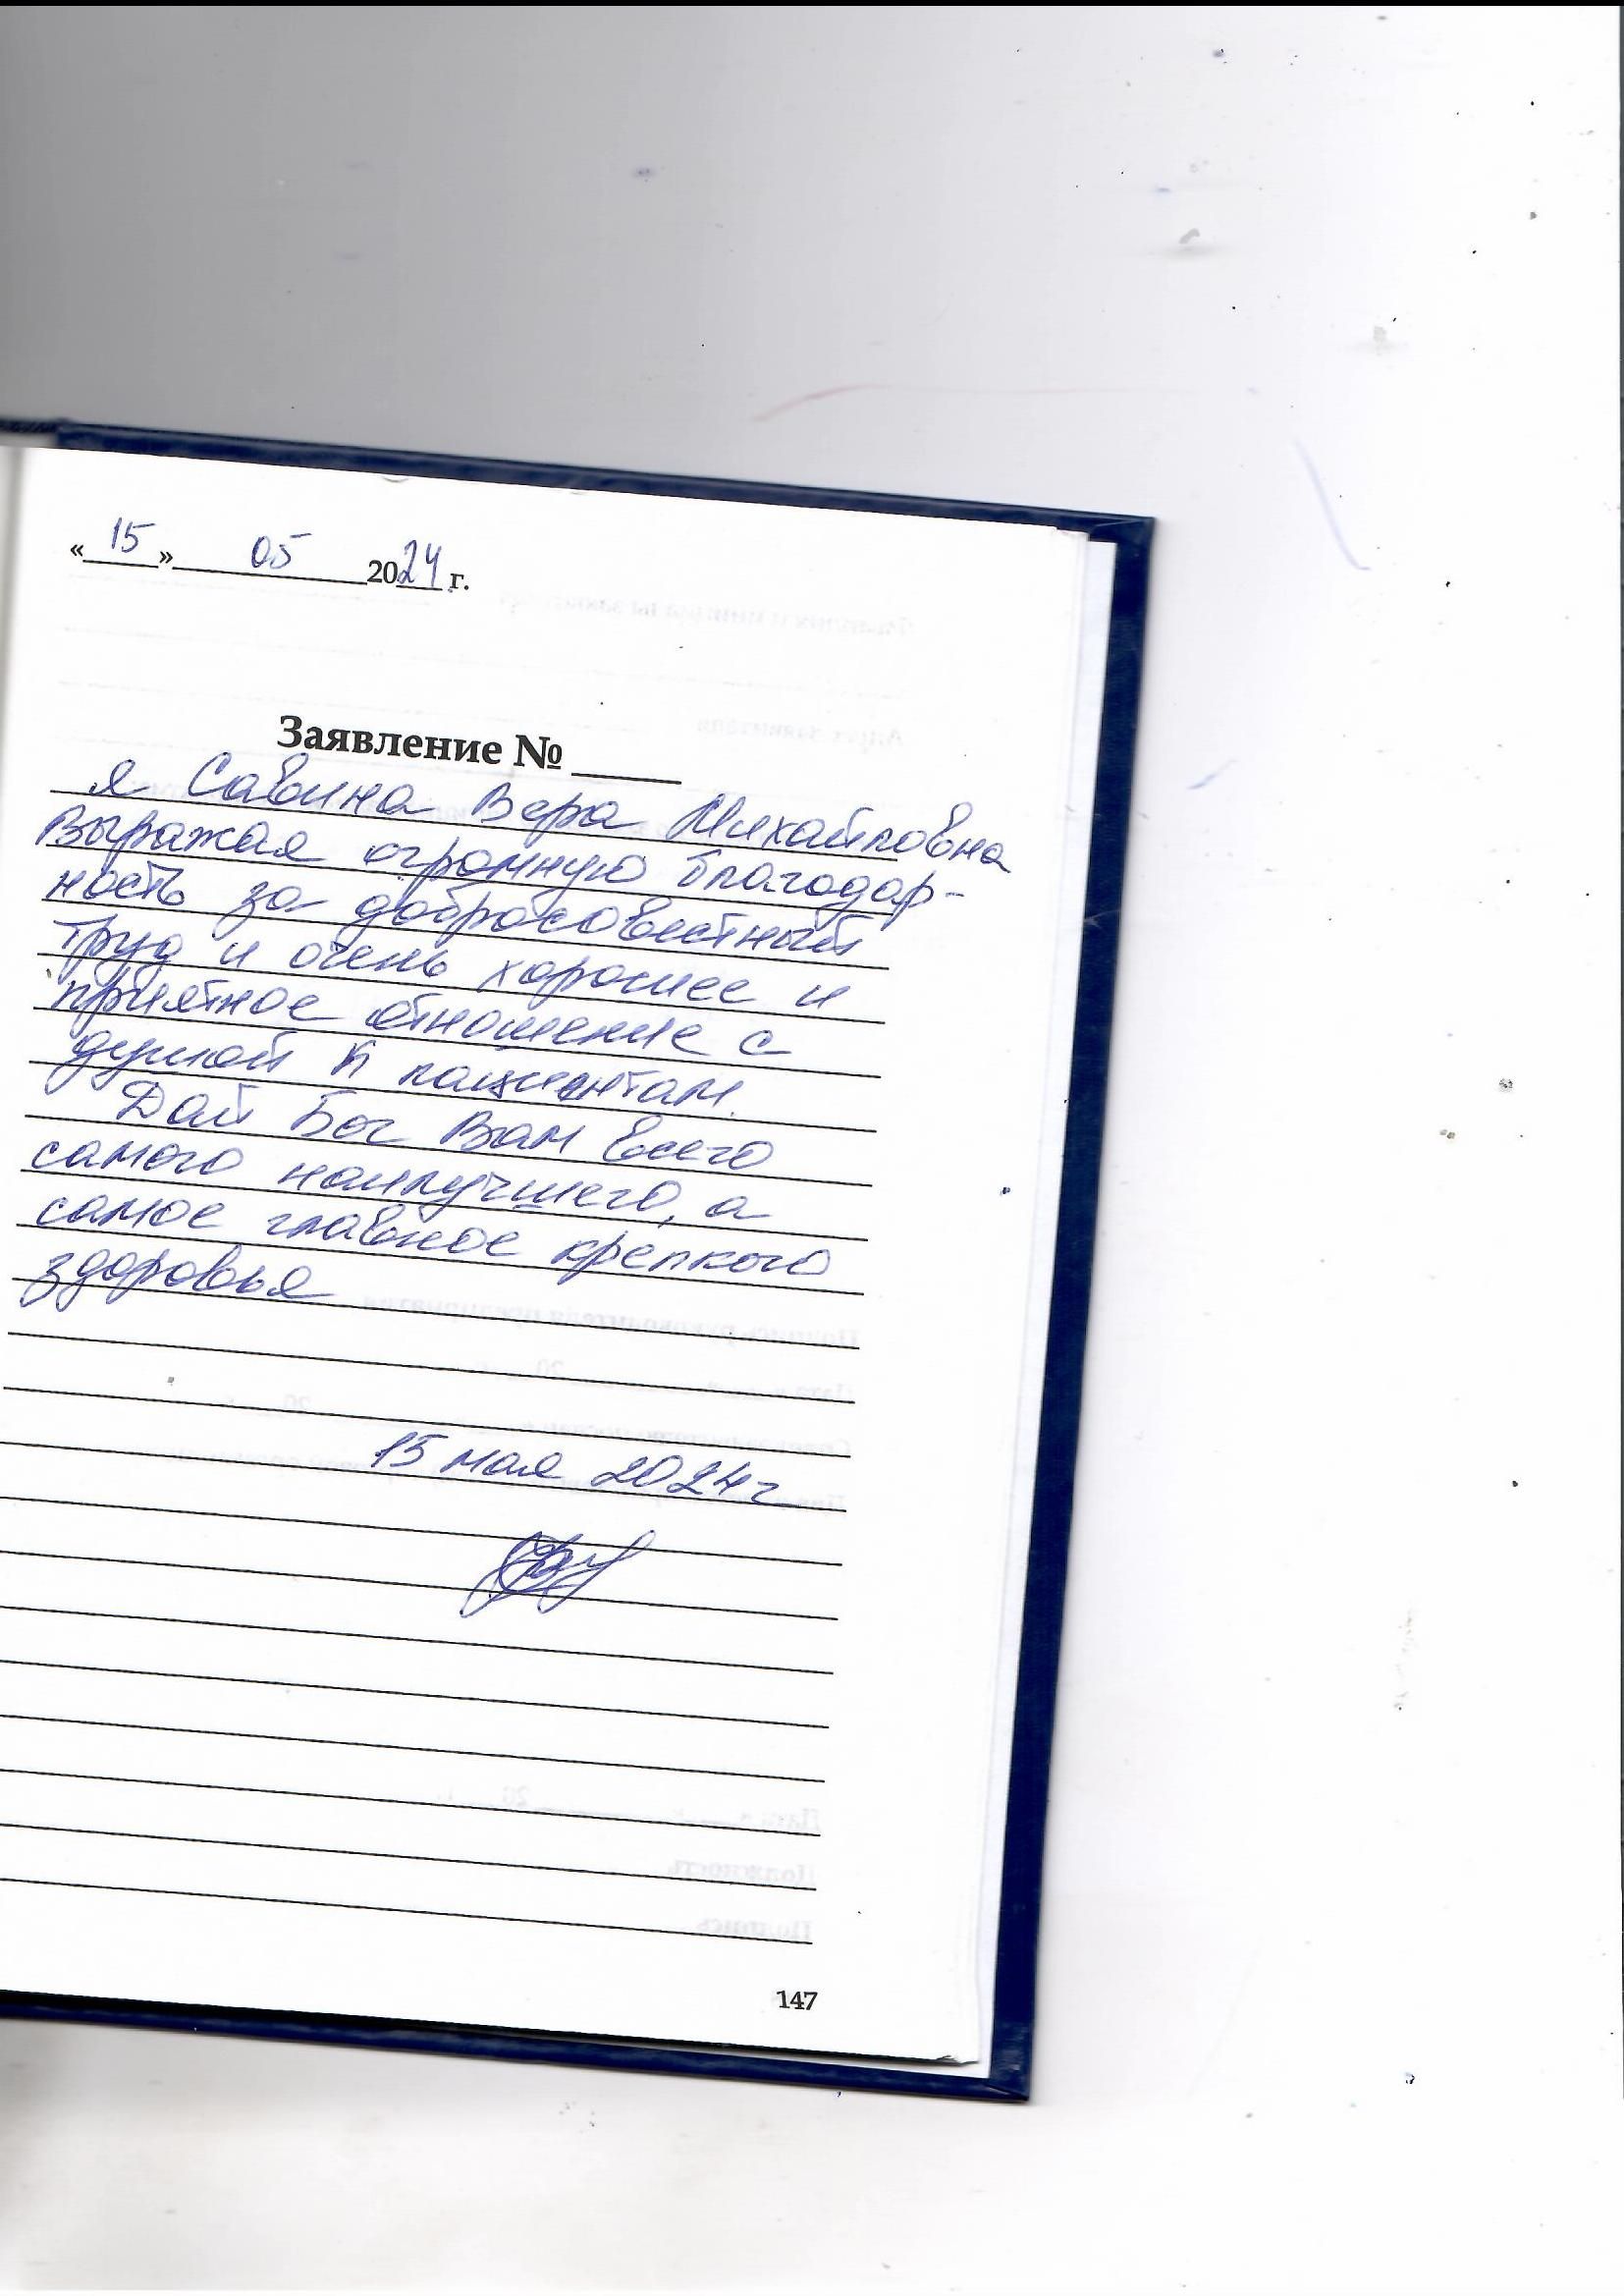 « 15 » 05 2024 г.
Заявление № ____
я Савина Вера Михайловна
Выражая огромную благодар-
ность за добросовестный
труд и очень хорошее и
приятное отношение с
душой к пациентам.
Дай Бог Вам всего
самого наилучшего, а
самое главное крепкого
здоровья
15 мая 2024 г
147